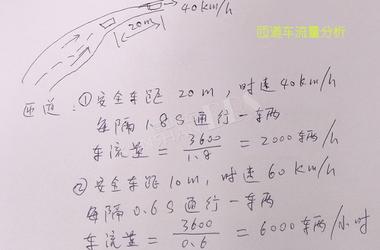 40km/h
20m
匝道车流量分析
匝道： ①安全车距 20m ，时速 40km/h
每隔 1.8S 通行一车两
车流量 = 3600/1.8 = 2000车两/h
②安全车距 10m ，时速 60 km/h
每隔 0.6S 通行一车两
车流量 = 3600/0.6 = 6000车两/小时